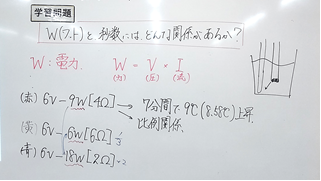 学習問題
W(ワット)と秒数には、どんな関係があるか?
W:電力 W = V × I
(力) (圧) (流)
(赤) 6V - 9W[4Ω] → 7分間で 9℃(8.58℃)上昇
比例関係
(黄) 6V - 6W[6Ω]
(青) 6V - 18W[2Ω]